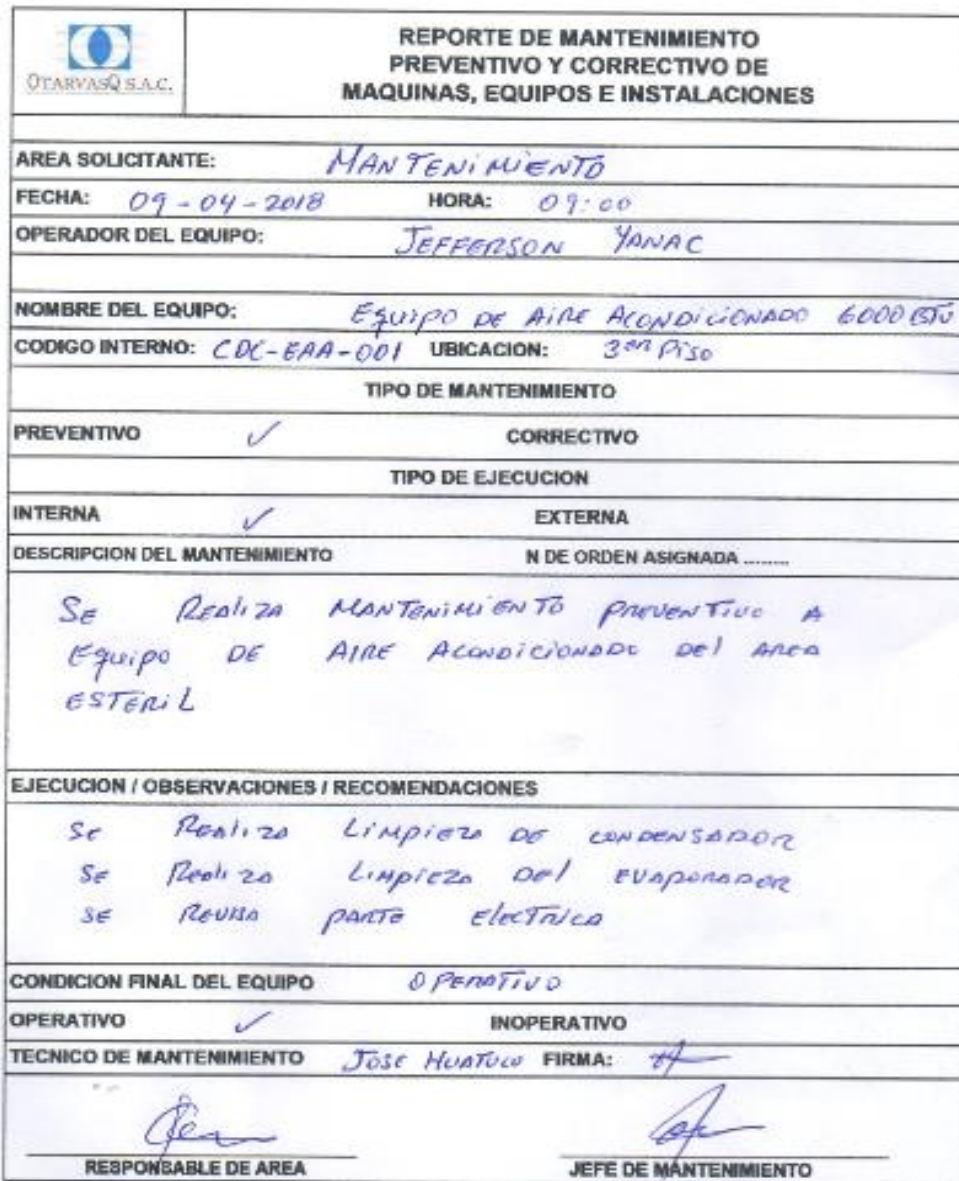 OTARVASQ S.A.C.
REPORTE DE MANTENIMIENTO
PREVENTIVO Y CORRECTIVO DE
MAQUINAS, EQUIPOS E INSTALACIONES
AREA SOLICITANTE: MANTENIMIENTO
FECHA: 09-04-2018 HORA: 09:00
OPERADOR DEL EQUIPO: JEFFERSON YANAC
NOMBRE DEL EQUIPO: EQUIPO DE AIRE ACONDICIONADO 6000 BTU
CODIGO INTERNO: CDC-EAA-001 UBICACION: 3er Piso
TIPO DE MANTENIMIENTO
PREVENTIVO ✓ CORRECTIVO
TIPO DE EJECUCION
INTERNA ✓ EXTERNA
DESCRIPCION DEL MANTENIMIENTO N DE ORDEN ASIGNADA .........
SE REALIZA MANTENIMIENTO PREVENTIVO A
EQUIPO DE AIRE ACONDICIONADO DEL AREA
ESTERIL
EJECUCION / OBSERVACIONES / RECOMENDACIONES
SE REALIZA LIMPIEZA DE CONDENSADOR
SE REALIZA LIMPIEZA DEL EVAPORADOR
SE REVISA PARTE ELECTRICA
CONDICION FINAL DEL EQUIPO OPERATIVO
OPERATIVO ✓ INOPERATIVO
TECNICO DE MANTENIMIENTO JOSE HUATUCO FIRMA:
RESPONSABLE DE AREA JEFE DE MANTENIMIENTO